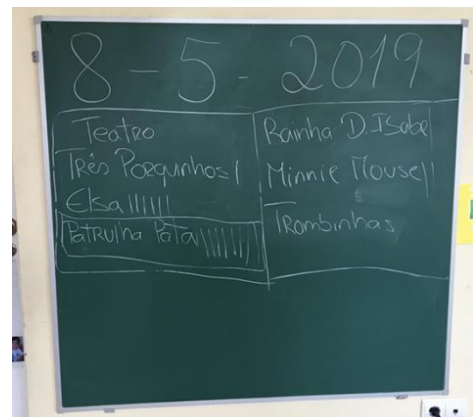 8-5-2019
Teatro
Três Porquinhos |
Elsa ||||||
Patrulha Pata |||||||||
Rainha D. Isabel
Minnie Mouse ||
Trombinhas